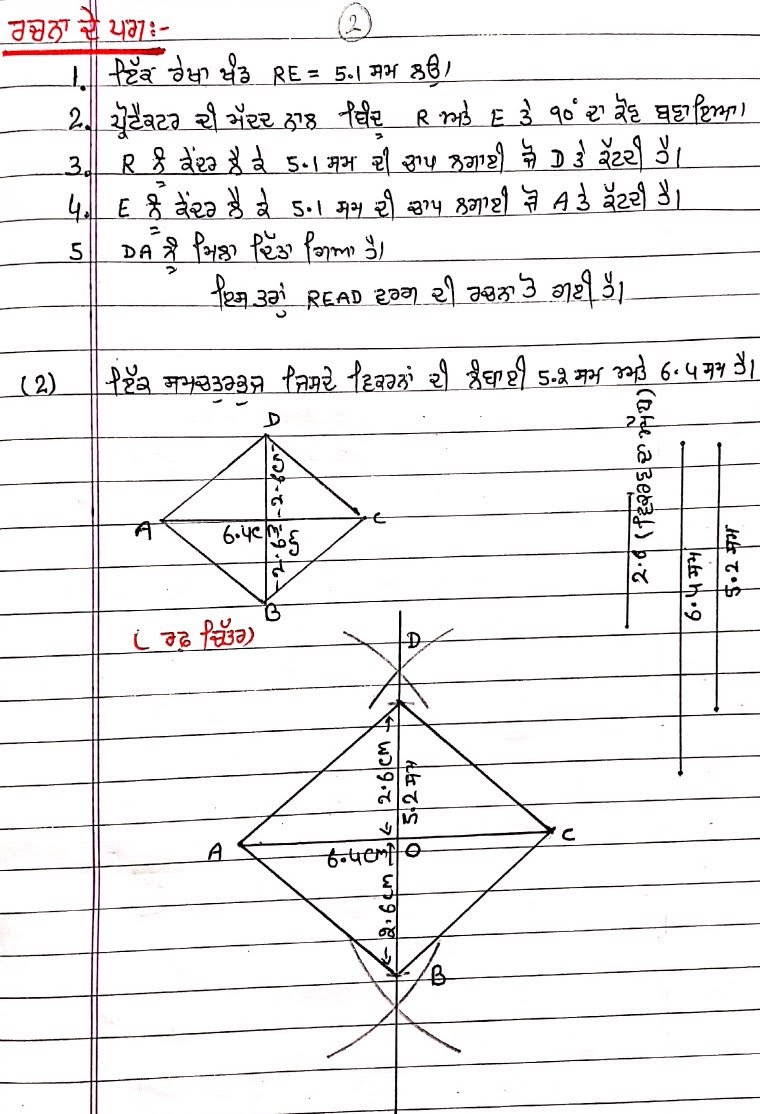 ਰਚਨਾ ਦੇ ਪਗ:- 2
1. ਇੱਕ ਰੇਖਾ ਖੰਡ RE = 5.1 ਸਮ ਲਉ।
2. ਪ੍ਰੋਟੈਕਟਰ ਦੀ ਮੱਦਦ ਨਾਲ ਬਿੰਦੂ R ਅਤੇ E ਤੇ 90° ਦਾ ਕੋਣ ਬਣਾਇਆ।
3. R ਨੂੰ ਕੇਂਦਰ ਲੈ ਕੇ 5.1 ਸਮ ਦੀ ਚਾਪ ਲਗਾਈ ਜੋ D ਤੇ ਕੱਟਦੀ ਹੈ।
4. E ਨੂੰ ਕੇਂਦਰ ਲੈ ਕੇ 5.1 ਸਮ ਦੀ ਚਾਪ ਲਗਾਈ ਜੋ A ਤੇ ਕੱਟਦੀ ਹੈ।
5 DA ਨੂੰ ਮਿਲਾ ਦਿੱਤਾ ਗਿਆ ਹੈ।
ਇਸ ਤਰਾਂ READ ਵਰਗ ਦੀ ਰਚਨਾ ਹੋ ਗਈ ਹੈ।
(2) ਇੱਕ ਸਮਚਤੁਰਭੁਜ ਜਿਸਦੇ ਵਿਕਰਨਾਂ ਦੀ ਲੰਬਾਈ 5.2 ਸਮ ਅਤੇ 6.4 ਸਮ ਹੈ।
D
2.6cm
A
6.4cm
C
2.6
B
(ਰਫ਼ ਚਿੱਤਰ)
2.6 (ਵਿਕਰਣ ਦਾ ਅੱਧ)
6.4 ਸਮ
5.2 ਸਮ
D
2.6cm
5.2 ਸਮ
A
6.4cm
O
C
2.6cm
B